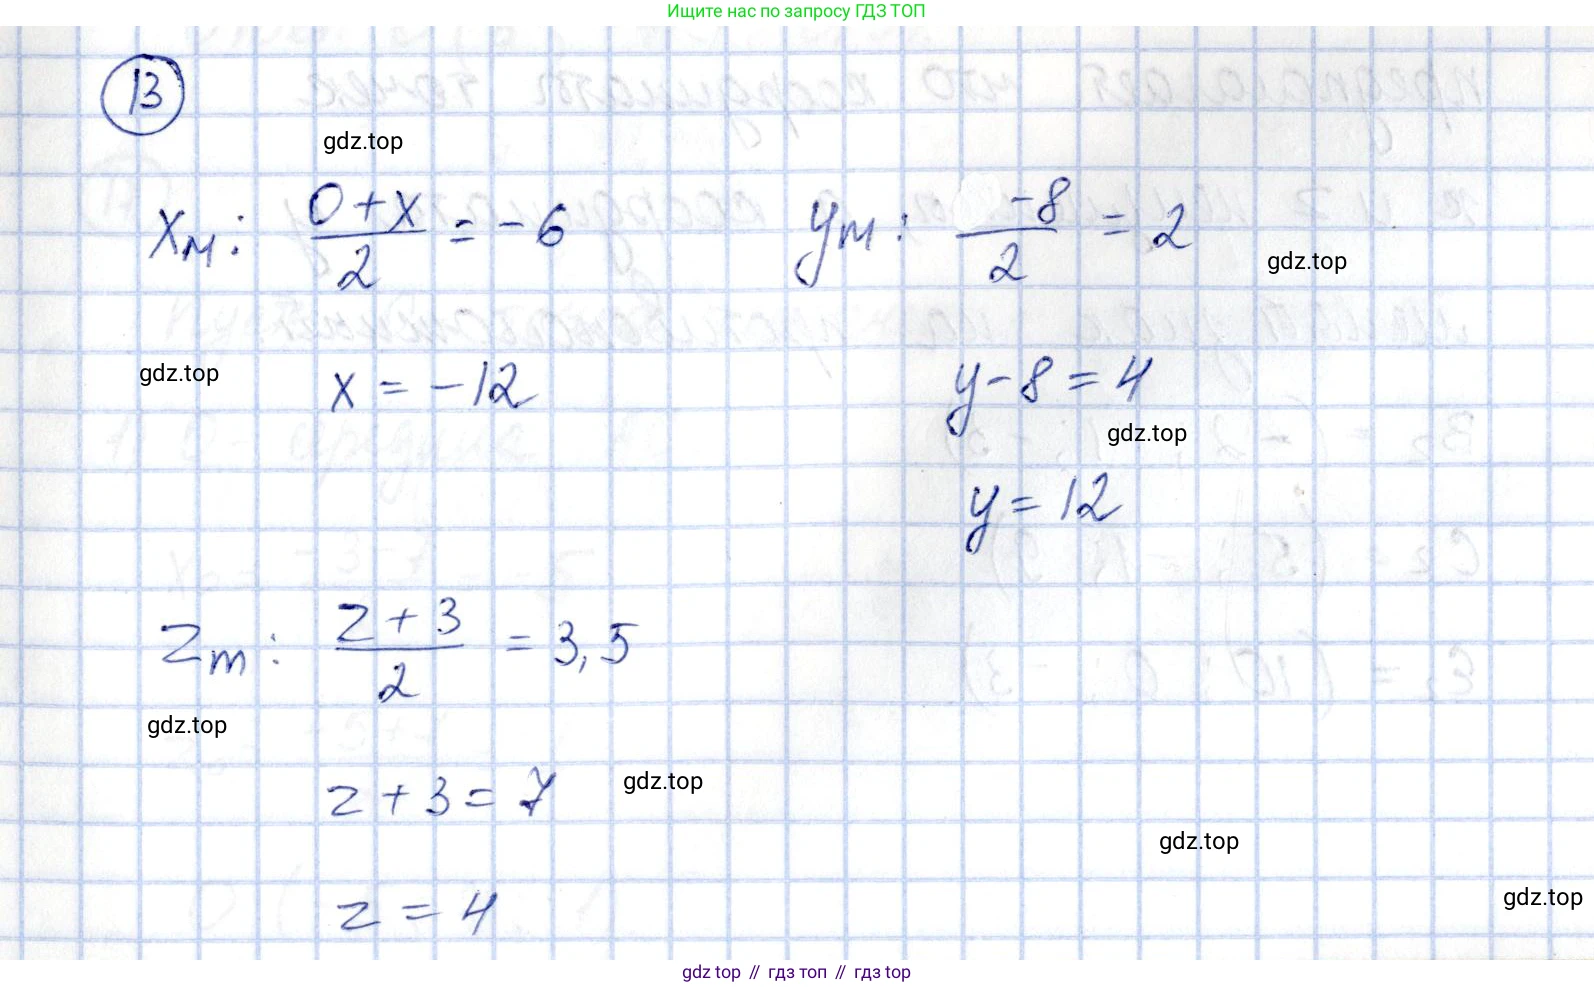 Ищите нас по запросу ГДЗ ТОП
13
gdz.top
xм: (0+x)/2 = -6
yм: -8/2 = 2
gdz.top
gdz.top
x = -12
y-8 = 4
gdz.top
y = 12
zm: (z+3)/2 = 3,5
gdz.top
z+3 = 7
gdz.top
gdz.top
z = 4
gdz.top
gdz top // гдз топ // gdz top